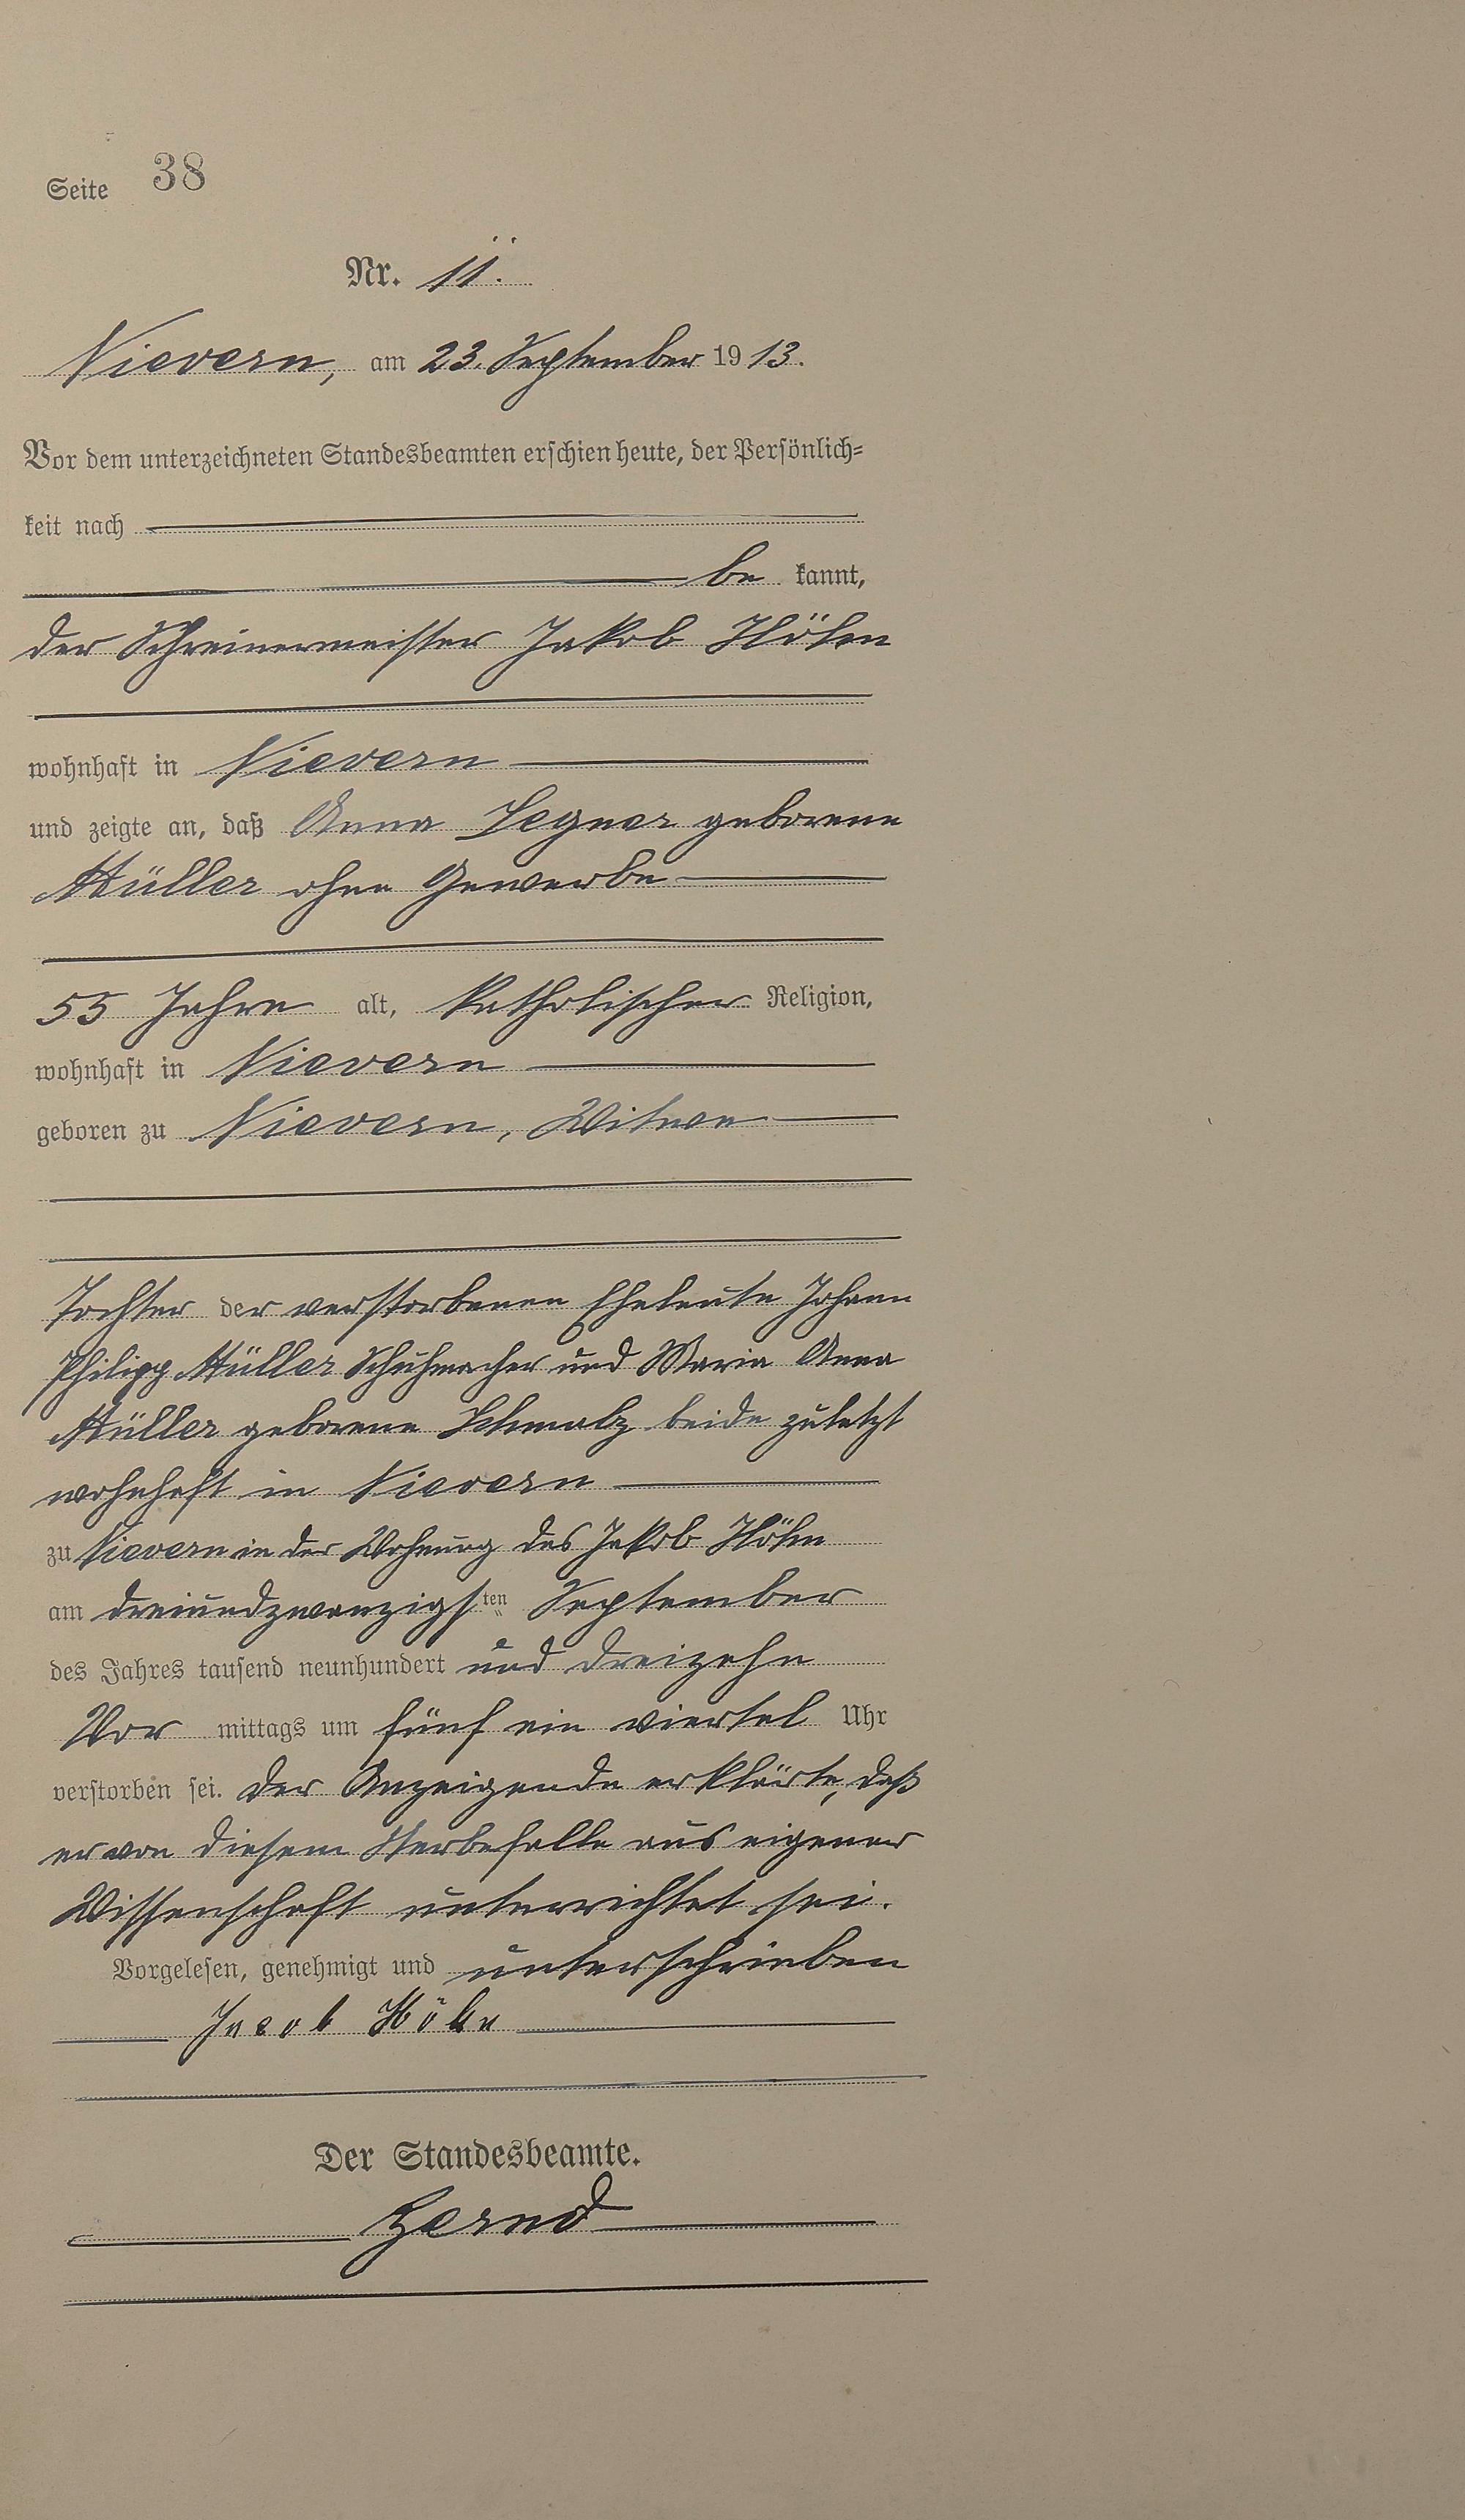 Seite 38
Nr. 11.
Nievern, am 23. September 1913.
Vor dem unterzeichneten Standesbeamten erschien heute, der Persönlich=
keit nach
be kannt,
der Schreinermeister Jakob Höhn
wohnhaft in Nievern
und zeigte an, daß Anna Legner geborene
Müller ohne Gewerbe
55 Jahre alt, katholischer Religion,
wohnhaft in Nievern
geboren zu Nievern, Witwe
Tochter der verstorbenen Eheleute Johann
Philipp Müller Schuhmacher und Maria Anna
Müller geborene Schmalz beide zuletzt
wohnhaft in Nievern
zu Nievern in der Wohnung des Jakob Höhn
am dreiundzwanzigsten September
des Jahres tausend neunhundert und dreizehn
Vor mittags um fünf ein viertel Uhr
verstorben sei. Der Anzeigende erklärte, daß
er von diesem Sterbefalle aus eigener
Wissenschaft unterrichtet sei.
Vorgelesen, genehmigt und unterschrieben
Jacob Höhn
Der Standesbeamte.